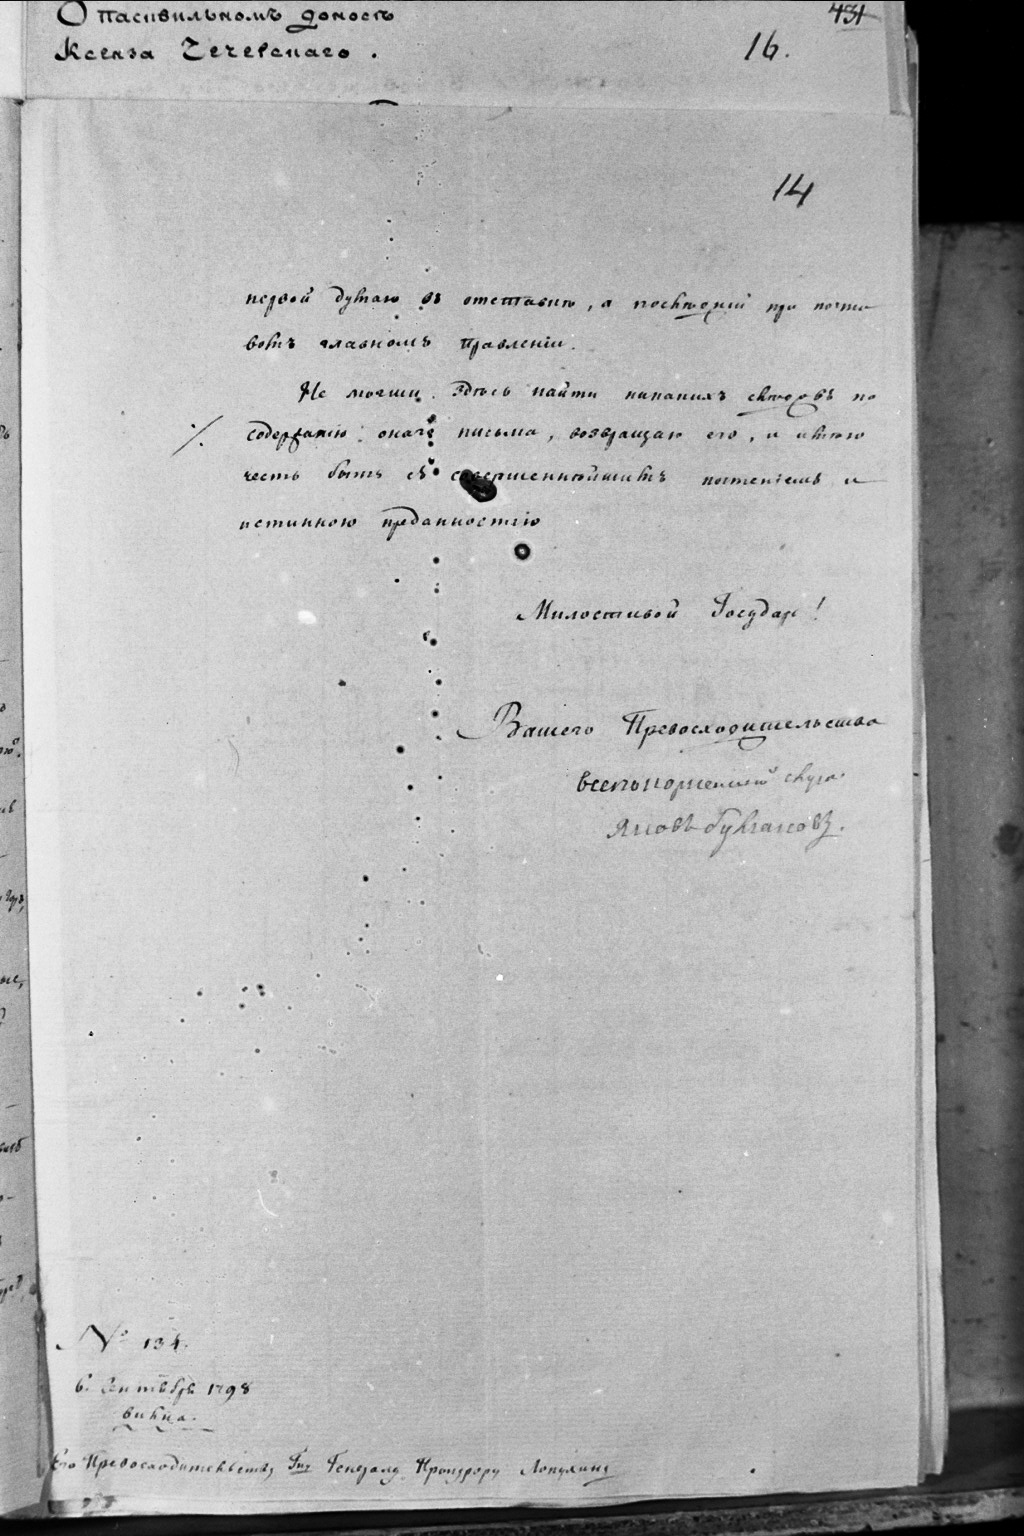 О пасквильномъ доносѣ
Ксенза Чечерскаго.
431
16.
14
первой думаю въ отставкѣ, а послѣдній при почто
вомъ главномъ Правленіи.
Не могши здѣсь найти никакихъ слѣдовъ по
содержанію онаго письма, возвращаю его, и имѣю
честь быть съ совершеннѣйшимъ почтеніемъ и
истинною преданностію
Милостивой Государь!
Вашего Превосходительства
всепокорнѣйшій слуга
Яковъ Булгаковъ.
№ 134.
6. Сентября 1798
вильна.
Его Превосходительству Гну Генералу Прокурору Лопухину